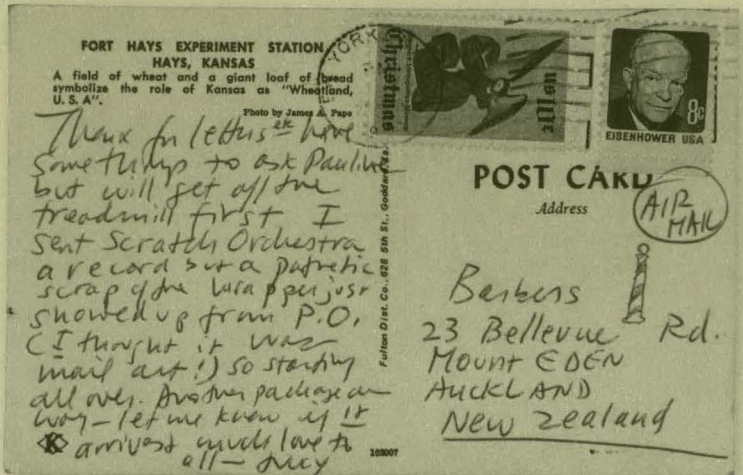 FORT HAYS EXPERIMENT STATION
HAYS, KANSAS
A field of wheat and a giant loaf of bread
symbolize the role of Kansas as "Wheatland,
U. S. A".
Photo by James A. Pape
Thanx for letters etc have
some things to ask Pauline
but will get off the
treadmill first I
sent Scratch Orchestra
a record but a pathetic
scrap of the wrapper just
showed up from P.O.
(I thought it was
mail art!) so starting
all over. Another package on
way — let me know if it
arrives much love to
all —
K
102007
Fulton Dist. Co., 628 5th St., Goddard, Ks.
YORK
Christmas
US 11c
8c
EISENHOWER USA
POST CARD
Address
AIR
MAIL
Barbers
23 Bellevue Rd.
MOUNT EDEN
AUCKLAND
New Zealand